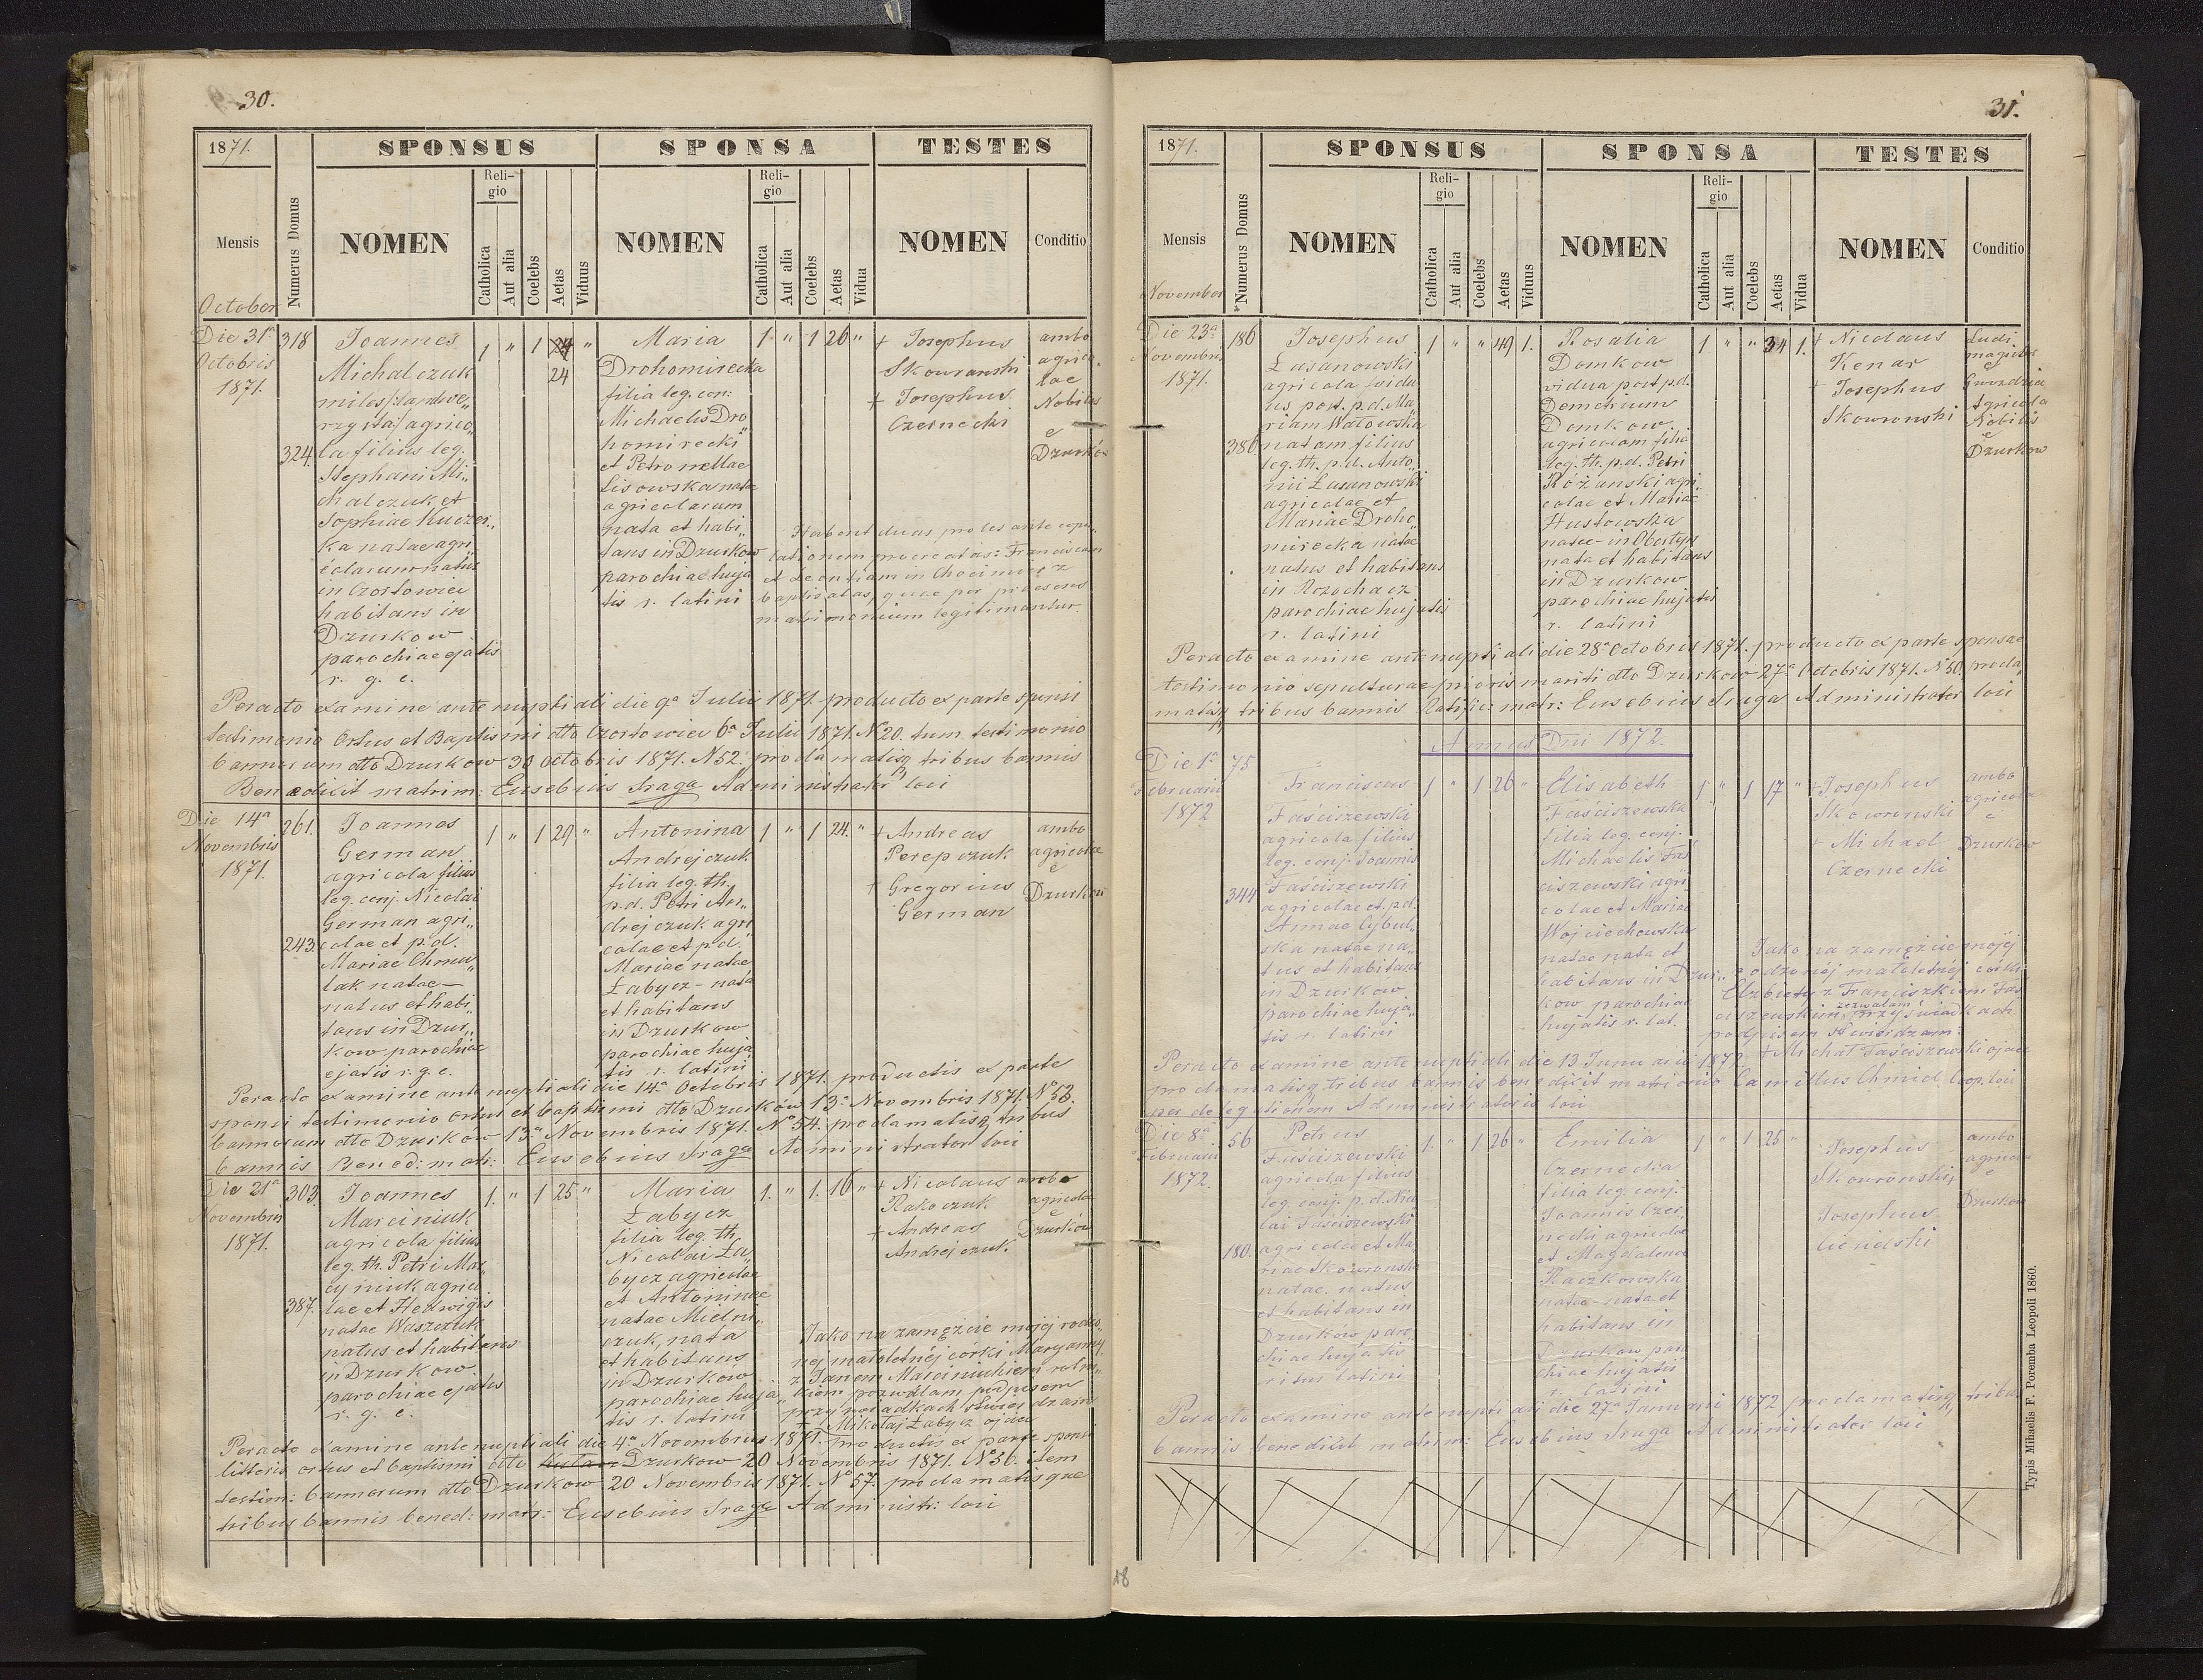 30.
1871.
SPONSUS
SPONSA
TESTES
Mensis
Numerus Domus
NOMEN
Religio
Catholica
Aut alia
Coelebs
Aetas
Viduus
NOMEN
Religio
Catholica
Aut alia
Coelebs
Aetas
Vidua
NOMEN
Conditio
October
Die 31a
Octobris
1871.
318
324.
Joannes
Michalczuk
miles /:landwe„
rzysta:/ agrico„
la filius leg.
Stephani Mi„
chalczuk et
Sophiae Kuczer„
ka natae agri„
colarum natus
in Czortowiec
habitans in
Dzurkow
parochiae ejatis
r. g. c.
1 " 1 24 "
24
Maria
Drohomirecka
filia leg. con:
Michaelis Dro„
homirecki
et Petronellae
Lisowska natae
agricolarum
nata et habi„
tans in Dzurkow
parochiae huja„
tis r. latini
1 " 1 26 "
+ Josephus
Skowronski
+ Josephus
Czernecki
ambo
agrico„
lae
Nobiles
e
Dzurków
Habent duas proles ante copu„
lationem procreatas: Franciscam
et Leontiam in Chocimierz
baptisatas, quae per praesens
matrimonium legitimantur
Peracto examine antenuptiali die 9a Julii 1871. producto ex parte sponsi
testimonio Ortus et Baptismi dtto Czortowiec 6a Julii 1871. N 20. tum testimonio
bannorum dtto Dzurkow 30 octobris 1871. N 52. proclamatisq tribus bannis
Benedixit matrim: Eusebius Sraga Administrator loci
Die 14a
Novembris
1871.
261.
243.
Joannes
German
agricola filius
leg. conj. Nicolai
German agri„
colae et p. d.
Mariae Chmu„
lak natae –
natus et habi„
tans in Dzur„
kow parochiae
ejatis r. g. c.
1 " 1 29 "
Antonina
Andrejczuk
filia leg. th.
p.d. Petri An„
drejczuk agri„
colae et p.d.
Mariae natae
Łabycz – nata
et habitans
in Dzurkow
parochiae huja„
tis r. latini
1 " 1 24. "
+ Andreas
Perepczuk
+ Gregorius
German
ambo
agricolae
e
Dzurków
Peracto examine antenuptiali die 14a Octobris 1871. productis ex parte
sponsi testimonio ortus et baptismi dtto Dzurków 13a Novembris 1871. No 53.
bannorum dtto Dzurkow 13a Novembris 1871. No 54. proclamatisq tribus
bannis Bened: matr: Eusebius Sraga Administrator loci
Die 21a
Novembris
1871.
303
387.
Joannes
Marciniuk
agricola filius
leg. th. Petri Mar„
cyniuk agrico„
lae et Hedwigis
natae Waszczuk
natus et habitans
in Dzurkow
parochiae ejatis
r. g. c.
1. " 1 25 "
Maria
Łabycz
filia leg. th.
Nicolai Ła„
bycz agricolae
et Antoninae
natae Mielni„
czuk, nata
et habitans
in Dzurków
parochiae huja„
tis r. latini
1. " 1. 16 "
+ Nicolaus
Rakoczuk
+ Andreas
Andrejczuk.
ambo
agricolae
e
Dzurków
Jako na zamężcie mojej rodzo„
nej małoletnéj córki Maryanny
z Janem Marciniukiem rolni„
kiem pozwalam, podpisem
przy świadkach stwierdzam
+ Mikołaj Łabycz ojciec
Peracto examine antenuptiali die 4a Novembris 1871. productis ex parte sponsi
litteris ortus et baptismi dtto Dzurkow 20 Novembris 1871. No 56. item
testim: bannorum dtto Dzurkow 20 Novembris 1871. No 57. proclamatisque
tribus bannis bened: matr: Eusebius Sraga Administr: loci
31.
1871.
SPONSUS
SPONSA
TESTES
Mensis
Numerus Domus
NOMEN
Religio
Catholica
Aut alia
Coelebs
Aetas
Viduus
NOMEN
Religio
Catholica
Aut alia
Coelebs
Aetas
Vidua
NOMEN
Conditio
November
Die 23a
Novembris
1871.
186
386
Josephus
Łusanowski
agricola /vidu„
us post. p.d. Ma„
riam Watowska
natam filius
leg. th. p.d. Anto„
nii Łusanowski
agricolae et
Mariae Droho„
mirecka natae
natus et habitans
in Rozochacz
parochiae hujatis
r. latini
1 " " 49 1.
Rosalia
Domkow
vidua post p.d.
Demetrium
Domkow
agricolam filia
leg. th. p.d. Petri
Rożanski agri„
colae et Mariae
Hustowska
natae – in Obertyn
nata et habitans
in Dzurkow
parochiae hujatis
r. latini
1 " " 34 1.
+ Nicolaus
Kenar
+ Josephus
Skowronski
Ludi
magister
e
Gwozdziec
Agricola
Nobilis
e
Dzurkow
Peracto examine antenuptiali die 28a Octobris 1871. producto ex parte sponsae
testimonio sepulturae prioris mariti dtto Dzurkow 27a Octobris 1871. N 50. procla„
matisq tribus bannis Ratific: matr: Eusebius Sraga Administrator loci
Annus Dni 1872.
Die 1a
Februarii
1872
75
344
Franciscus
Faściszewski
agricola filius
leg. conj. Joannis
Faściszewski
agricolae et p.d.
Annae Cybul„
ska natae na„
tus et habitans
in Dzurkow
parochiae huja„
tis r. latini
1 " 1 26 "
Elisabeth
Faściszewska
filia leg. conj.
Michaelis Faś„
ciszewski agri„
colae et Mariae
Wojciechowska
natae nata et
habitans in Dzur„
kow parochiae
hujatis r. lat.
1 " 1 17 "
+ Josephus
Skowronski
+ Michael
Czernecki
ambo
agricolae
e
Dzurkow
Jako na zamężcie mojéj
rodzonéj małoletnéj córki
Elżbiety z Franciszkiem Faś„
ciszewskim zezwalam przy świadkach
podpisem stwierdzam:
+ Michał Faściszewski ojciec
Peracto examine antenuptiali die 13 Januarii 1872
proclamatisq tribus bannis benedixit matrimonio Camillus Chmiel Coop. loci
per delegationem Administratoris loci
Die 8a
Februarii
1872.
56
180.
Petrus
Faściszewski
agricola filius
leg. conj. p.d. Nico„
lai Faściszewski
agricolae et Ma„
riae Skowronska
natae. natus
et habitans in
Dzurków paro„
chiae hujatis
ritus latini
1. " 1 26 "
Emilia
Czernecka
filia leg. conj.
Joannis Czer„
necki agricolae
et Magdalenae
Raczkowska
natae – nata et
habitans in
Dzurkow paro„
chiae hujatis
r. latini
1 " 1 25 "
Josephus
Skowronski,
Josephus
Cienelski
ambo
agricolae
e
Dzurkow
Peracto examine antenuptiali die 27a Januarii 1872 proclamatisq tribus
bannis benedixit matrim: Eusebius Sraga Administrator loci
Typis Mihaelis F. Poremba Leopoli 1860.
18